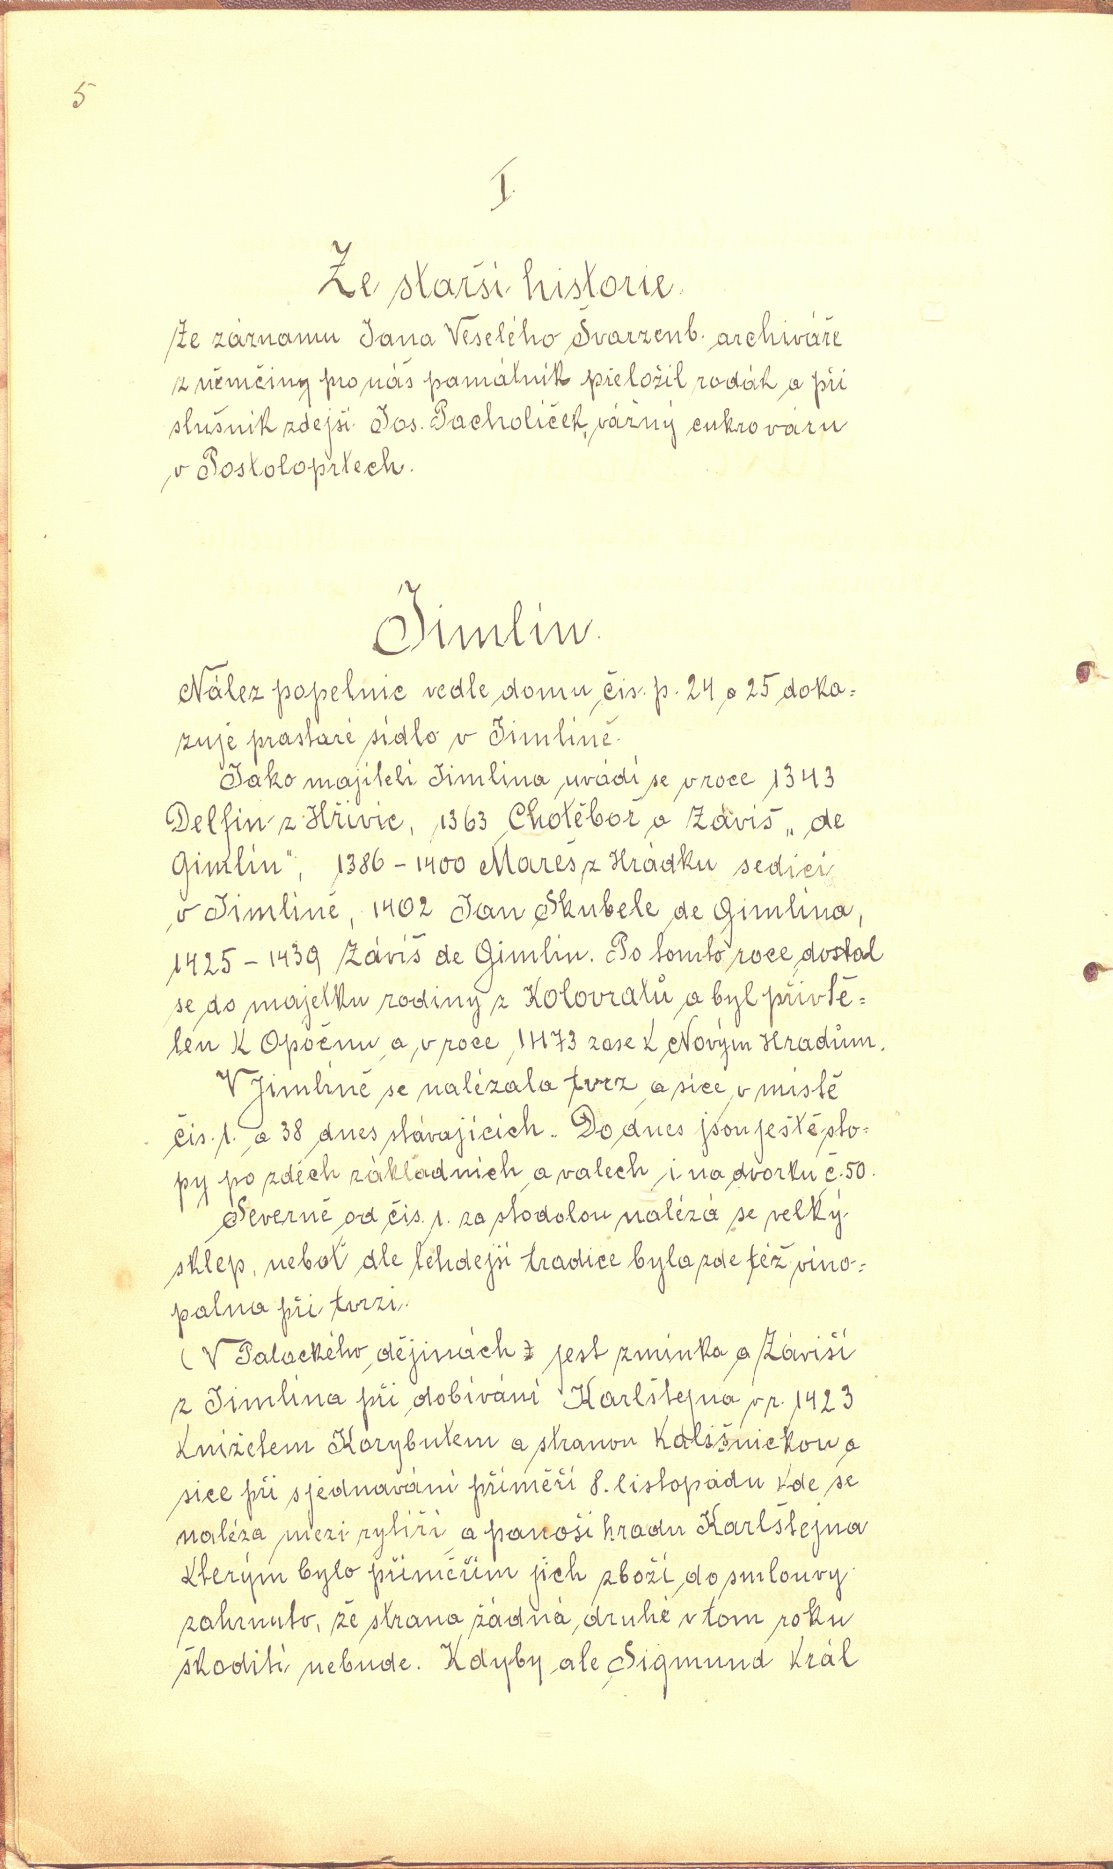 5
I.
Ze starší historie.
Ze záznamu Jana Veselého Švarzenb. archiváře
z němčiny pro náš památník přeložil rodák a při
slušník zdejší Jos. Pacholíček, vážný cukrovaru
v Postoloprtech.
Jimlín.
Nález popelnic vedle domu čís. p. 24 a 25 doka=
zuje prastaré sídlo v Jimlíně.
Jako majiteli Jimlína uvádí se v roce 1343
Delfín z Hřivic, 1363 Chotěboř a Záviš „de
Gimlin", 1386 – 1400 Mareš z Hrádku sedící
v Jimlíně, 1402 Jan Skubele de Gimlina,
1425 – 1439 Záviš de Gimlin. Po tomto roce dostal
se do majetku rodiny z Kolovratů a byl přivtě=
len k Opočnu a v roce 1473 zase k Novým Hradům.
V Jimlíně se nalézala tvrz a sice v místě
čís. 1. a 38 dnes stávajících. Do dnes jsou ještě sto=
py po zdech základních a valech i na dvorku č. 50.
Severně od čís. 1. za stodolou nalézá se velký
sklep, neboť dle tehdejší tradice byla zde též vino=
palna při tvrzi.
(V Palackého dějinách jest zmínka o Záviši
z Jimlína při dobívání Karlštejna v r. 1423
knížetem Korybutem a stranou Kališnickou a
sice při sjednavání příměří 8. listopadu kde se
naléza mezi rytíři a panoši hradu Karlštejna
kterým bylo příměřím jich zboží do smlouvy
zahrnuto, že strana žádná druhé v tom roku
škoditi nebude. Kdyby ale Sigmund král